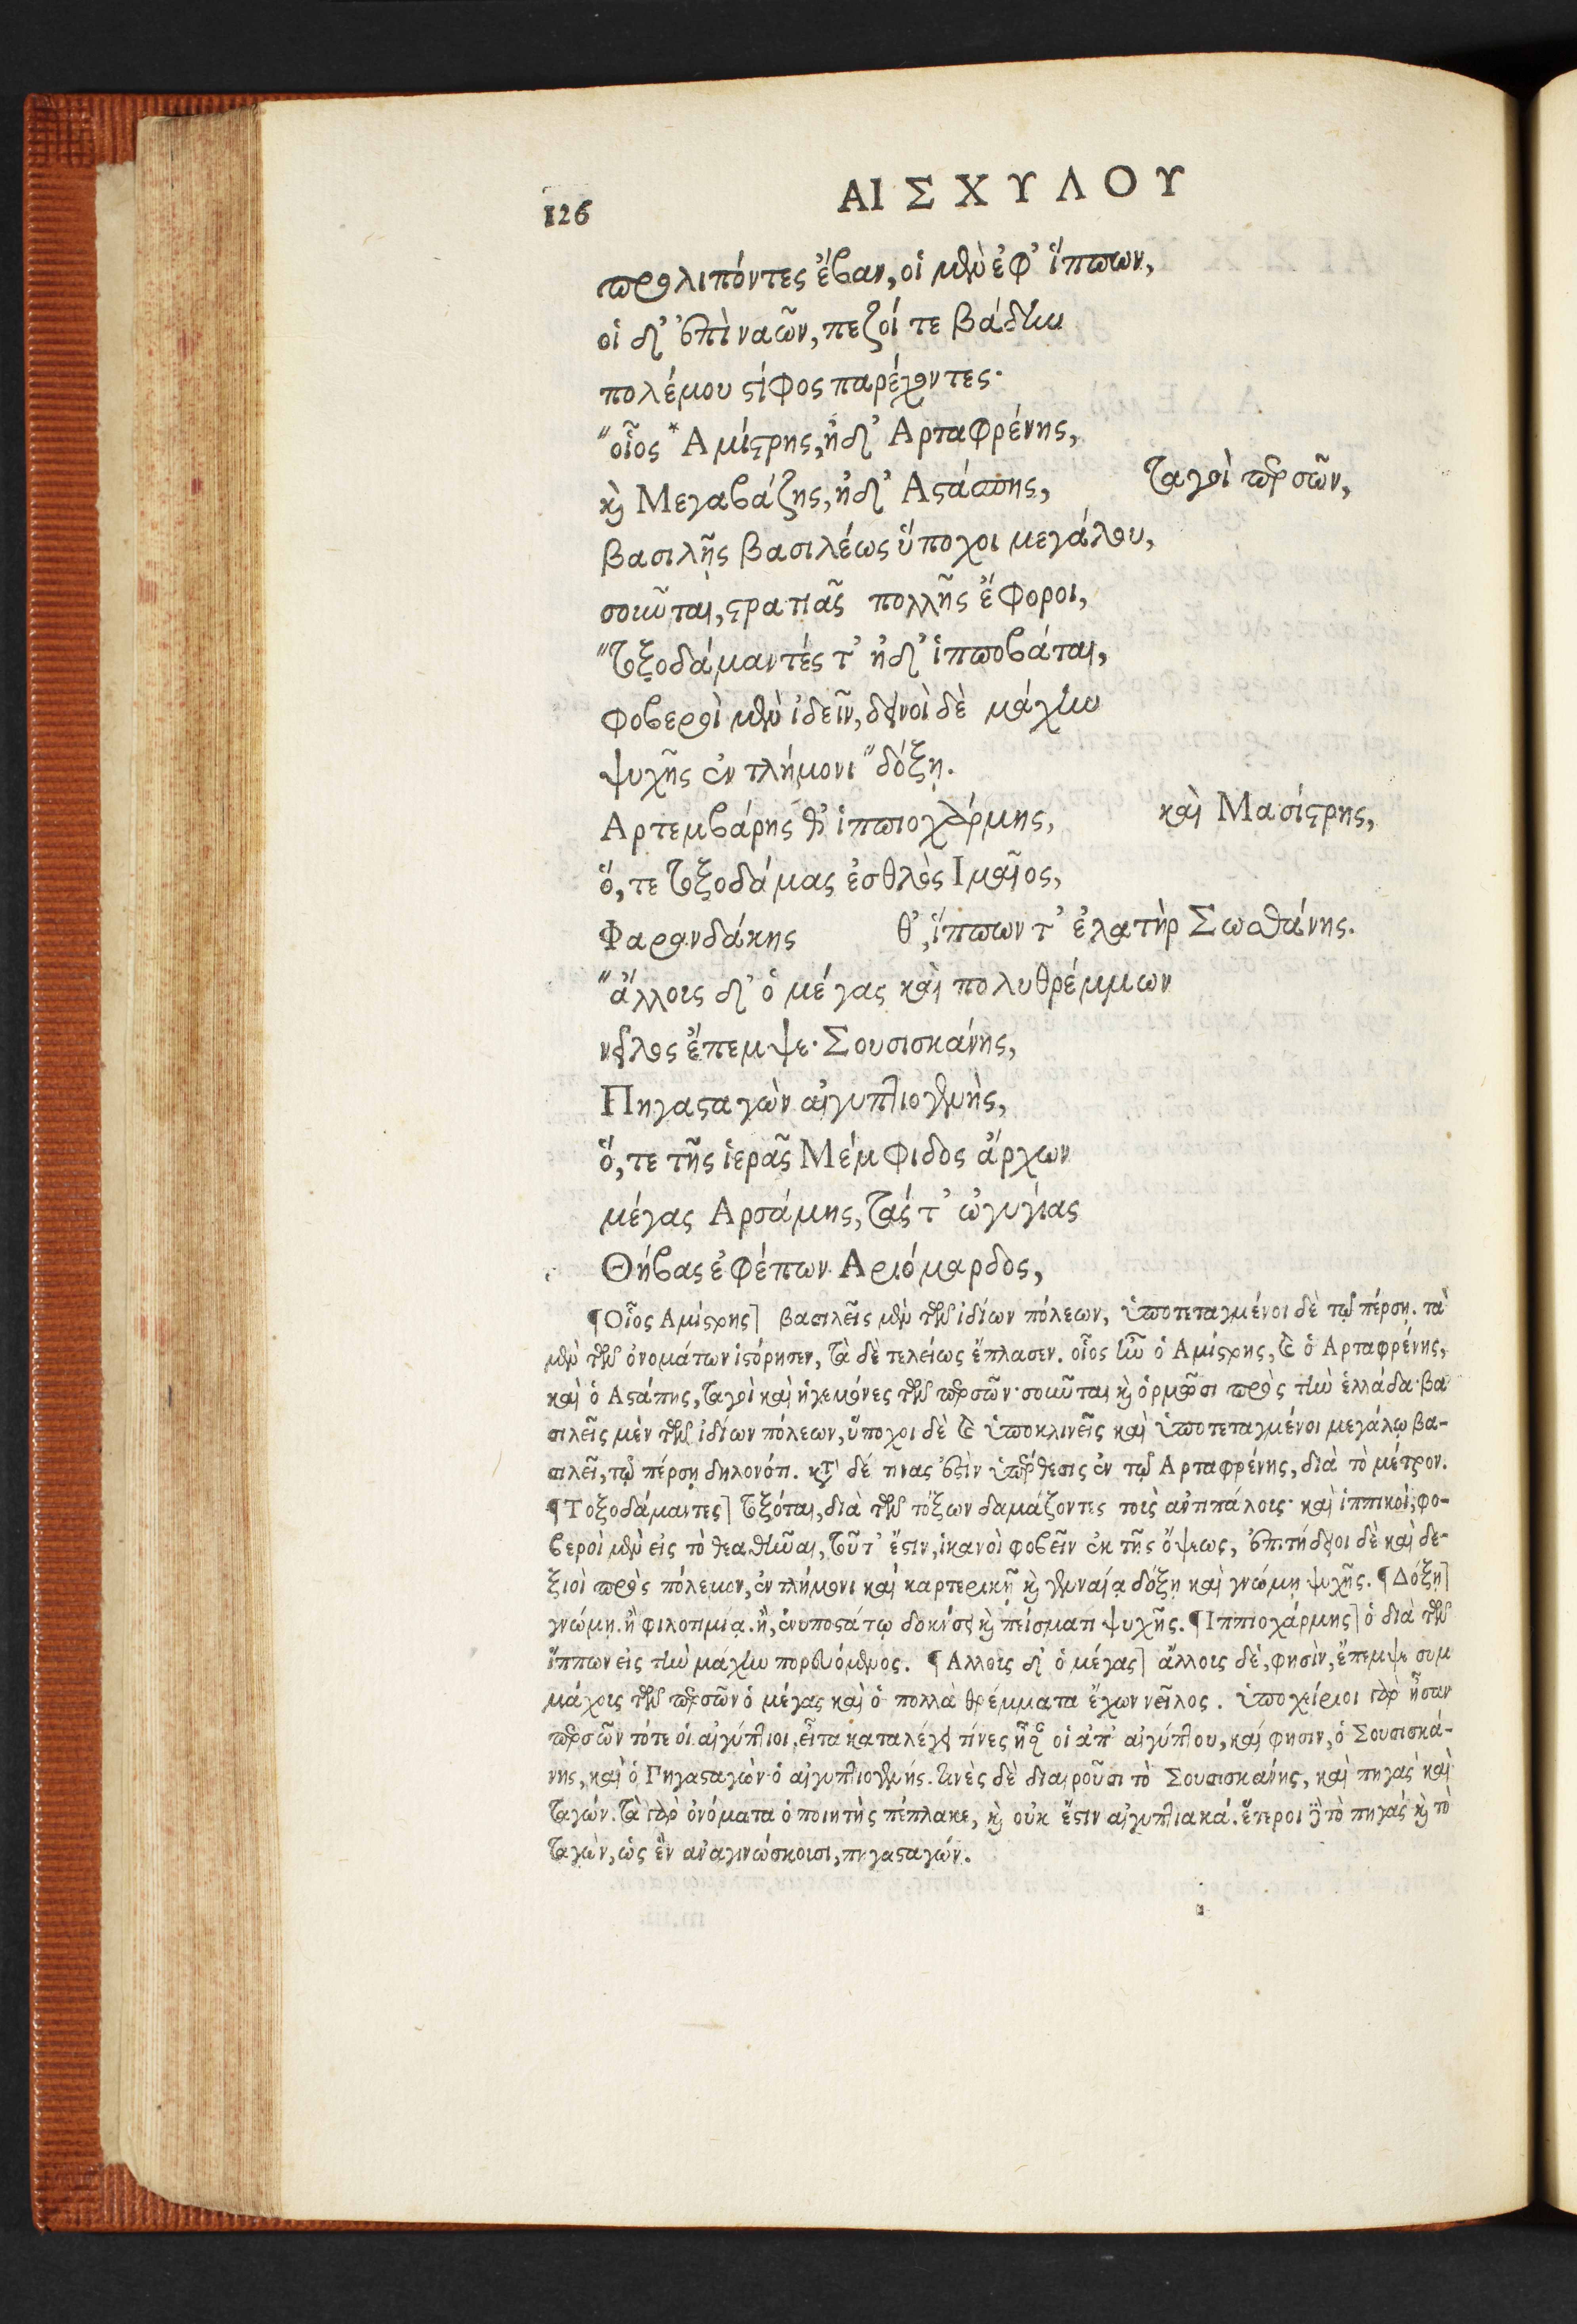 126
ΑΙΣΧΥΛΟΥ
προλιπόντες ἔβαν, οἱ μὲν ἐφ' ἵππων,
οἱ δ' ἐπὶ ναῶν, πεζοί τε βάδην
πολέμου στίφος παρέχοντες·
"οἷος *Αμίστρης, ἠδ' Αρταφρένης,
καὶ Μεγαβάζης, ἠδ' Αστάσπης, ταγοὶ περσῶν,
βασιλῆς βασιλέως ὕποχοι μεγάλου,
σοῦνται, στρατιᾶς πολλῆς ἔφοροι,
"τοξοδάμαντές τ' ἠδ' ἱπποβάται,
φοβεροὶ μὲν ἰδεῖν, δεινοὶ δὲ μάχην
ψυχῆς ἐν τλήμονι "δόξῃ.
Αρτεμβάρης θ' ἱππιοχάρμης, καὶ Μασίστρης,
ὅ, τε τοξοδάμας ἐσθλὸς Ιμαῖος,
Φαρανδάκης θ', ἵππων τ' ἐλατὴρ Σωσθάνης.
"ἄλλοις δ' ὁ μέγας καὶ πολυθρέμμων
νεῖλος ἔπεμψε· Σουσισκάνης,
Πηγασταγὼν αἰγυπτιογενὴς,
ὅ, τε τῆς ἱερᾶς Μέμφιδος ἄρχων
μέγας Αρσάμης, τάς τ' ὠγυγίας
Θήβας ἐφέπων Αριόμαρδος,
¶Οἷος Αμίστρης] βασιλεῖς μὲν τῶν ἰδίων πόλεων, ὑποτεταγμένοι δὲ τῷ πέρσῃ. τὰ
μὲν τῶν ὀνομάτων ἱστόρησεν, τὰ δὲ τελείως ἔπλασεν. οἷος ἦν ὁ Αμίστρης, καὶ ὁ Αρταφρένης,
καὶ ὁ Αστάπης, ταγοὶ καὶ ἡγεμόνες τῶν περσῶν· σοῦνται καὶ ὁρμῶσι πρὸς τὴν ἑλλάδα· βα
σιλεῖς μὲν τῶν ἰδίων πόλεων, ὕποχοι δὲ καὶ ὑποκλινεῖς καὶ ὑποτεταγμένοι μεγάλῳ βα-
σιλεῖ, τῷ πέρσῃ δηλονότι. κατὰ δέ τινας ἐστὶν ὑπέρθεσις ἐν τῷ Αρταφρένης, διὰ τὸ μέτρον.
¶Τοξοδάμαντες] τοξόται, διὰ τῶν τόξων δαμάζοντες τοὶς ἀντιπάλοις· καὶ ἱππικοὶ, φο-
βεροὶ μὲν εἰς τὸ θεαθῆναι, τοῦτ' ἔστιν, ἱκανοὶ φοβεῖν ἐκ τῆς ὄψεως, ἐπιτήδειοι δὲ καὶ δε-
ξιοὶ πρὸς πόλεμον, ἐν τλήμονι καὶ καρτερικῇ καὶ γενναίᾳ δόξῃ καὶ γνώμῃ ψυχῆς. ¶Δόξῃ]
γνώμῃ. ἢ φιλοτιμίᾳ. ἢ, ἀνυποστάτῳ δοκήσει καὶ πείσματι ψυχῆς. ¶Ιππιοχάρμης] ὁ διὰ τῶν
ἵππων εἰς τὴν μάχην πορευόμενος. ¶Αλλοις δ' ὁ μέγας] ἄλλοις δὲ, φησὶν, ἔπεμψε συμ
μάχοις τῶν περσῶν ὁ μέγας καὶ ὁ πολλὰ θρέμματα ἔχων νεῖλος. ὑποχείριοι γὰρ ἦσαν
περσῶν τότε οἱ αἰγύπτιοι. εἶτα καταλέγει τίνες ἦσαν οἱ ἀπ' αἰγύπτου, καί φησιν, ὁ Σουσισκά-
νης, καὶ ὁ Γηγασταγὼν ὁ αἰγυπτιογενής. τινὲς δὲ διαιροῦσι τὸ Σουσισκάνης, καὶ πηγὰς καὶ
ταγών. τὰ γὰρ ὀνόματα ὁ ποιητὴς πέπλακε, καὶ οὐκ ἔστιν αἰγυπτιακά. ἕτεροι δὲ τὸ πηγὰς καὶ τὸ
ταγὼν, ὡς ἓν ἀναγινώσκοισι, πηγασταγών.